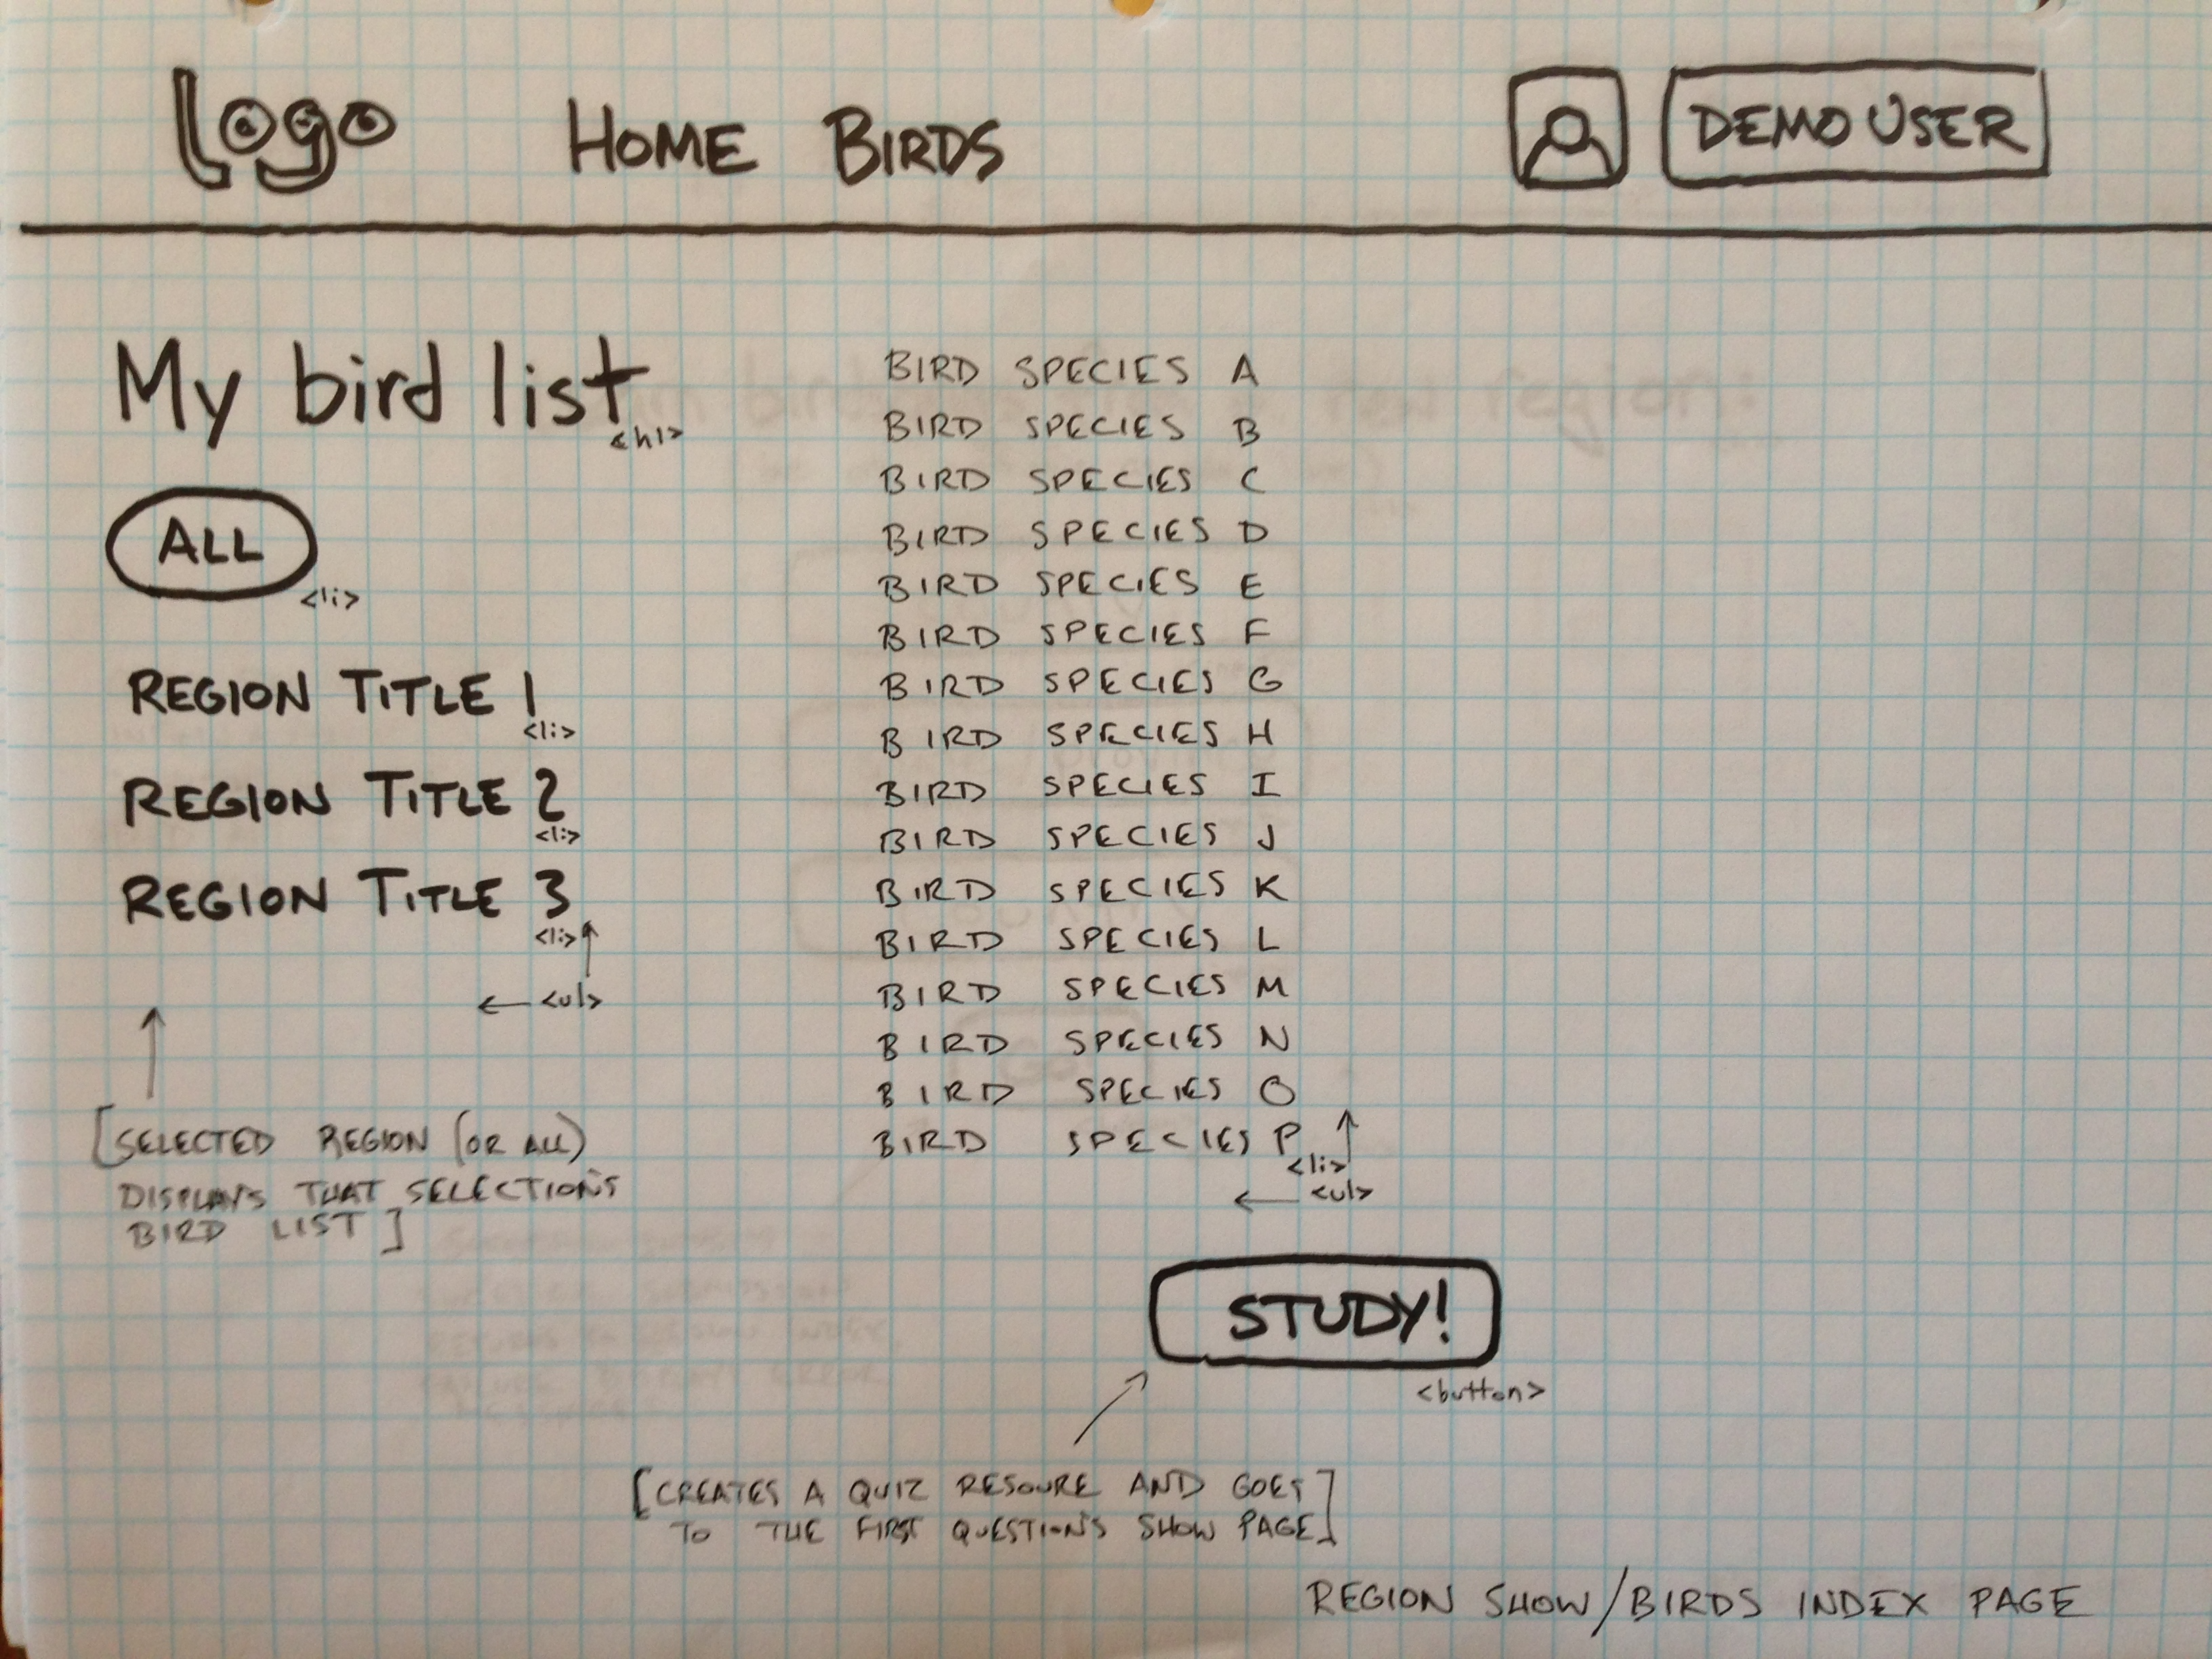 Logo HOME BIRDS DEMO USER
My bird list
<h1>
ALL
<li>
REGION TITLE 1
<li>
REGION TITLE 2
<li>
REGION TITLE 3
<li>
<ul>
[SELECTED REGION (OR ALL)
DISPLAYS THAT SELECTION'S
BIRD LIST]
BIRD SPECIES A
BIRD SPECIES B
BIRD SPECIES C
BIRD SPECIES D
BIRD SPECIES E
BIRD SPECIES F
BIRD SPECIES G
BIRD SPECIES H
BIRD SPECIES I
BIRD SPECIES J
BIRD SPECIES K
BIRD SPECIES L
BIRD SPECIES M
BIRD SPECIES N
BIRD SPECIES O
BIRD SPECIES P
<li>
<ul>
STUDY!
<button>
[CREATES A QUIZ RESOURE AND GOES
TO THE FIRST QUESTION'S SHOW PAGE]
REGION SHOW/BIRDS INDEX PAGE